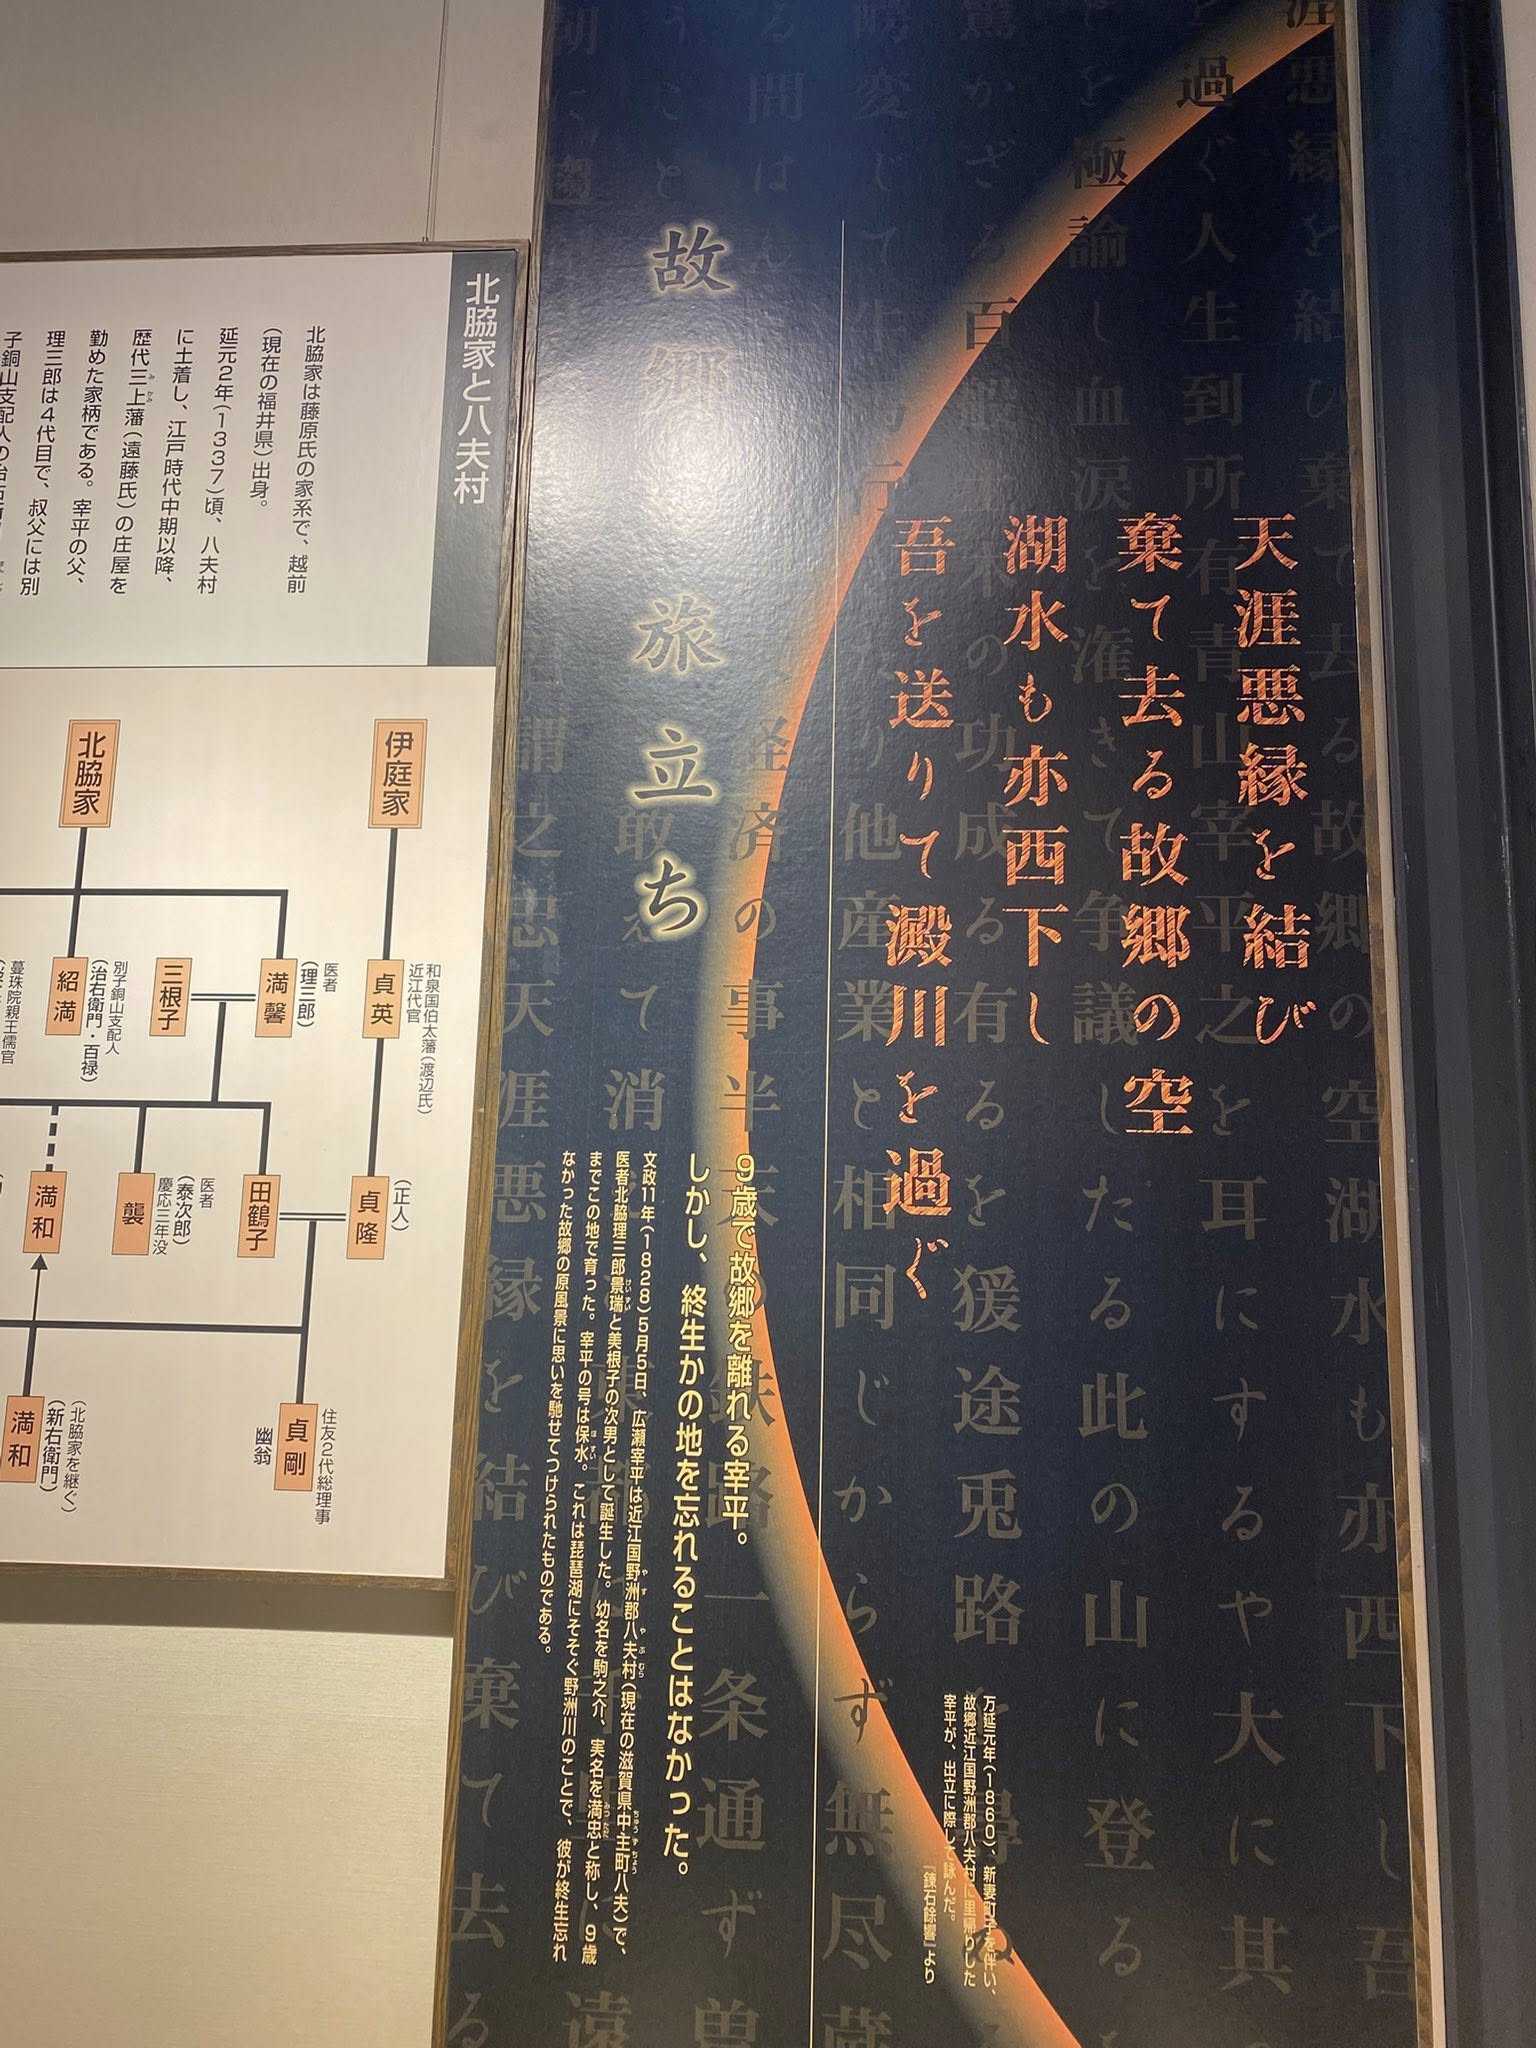 天涯悪縁を結び
棄て去る故郷の空
湖水も亦西下し
吾を送りて澱川を過ぐ
万延元年(1860)、新妻町子を伴い、
故郷近江国野洲郡八夫村に里帰りした
宰平が、出立に際して詠んだ。
『錬石餘響』より
故郷 旅立ち
9歳で故郷を離れる宰平。
しかし、終生かの地を忘れることはなかった。
文政11年(1828)5月5日、広瀬宰平は近江国野洲郡八夫村(現在の滋賀県中主町八夫)で、
医者北脇理三郎景瑞と美根子の次男として誕生した。幼名を駒之介、実名を満忠と称し、9歳
までこの地で育った。宰平の号は保水。これは琵琶湖にそそぐ野洲川のことで、彼が終生忘れ
なかった故郷の原風景に思いを馳せてつけられたものである。
北脇家と八夫村
北脇家は藤原氏の家系で、越前
(現在の福井県)出身。
延元2年(1337)頃、八夫村
に土着し、江戸時代中期以降、
歴代三上藩(遠藤氏)の庄屋を
勤めた家柄である。宰平の父、
理三郎は4代目で、叔父には別
子銅山支配人の治右衛
伊庭家
北脇家
和泉国伯太藩(渡辺氏)
近江代官
貞英
医者
(理三郎)
満馨
三根子
別子銅山支配人
(治右衛門・百禄)
紹満
蔓珠院親王儒官
(正人)
貞隆
田鶴子
医者
(泰次郎)
慶応三年没
襲
満和
住友2代総理事
貞剛
幽翁
(北脇家を継ぐ)
(新右衛門)
満和